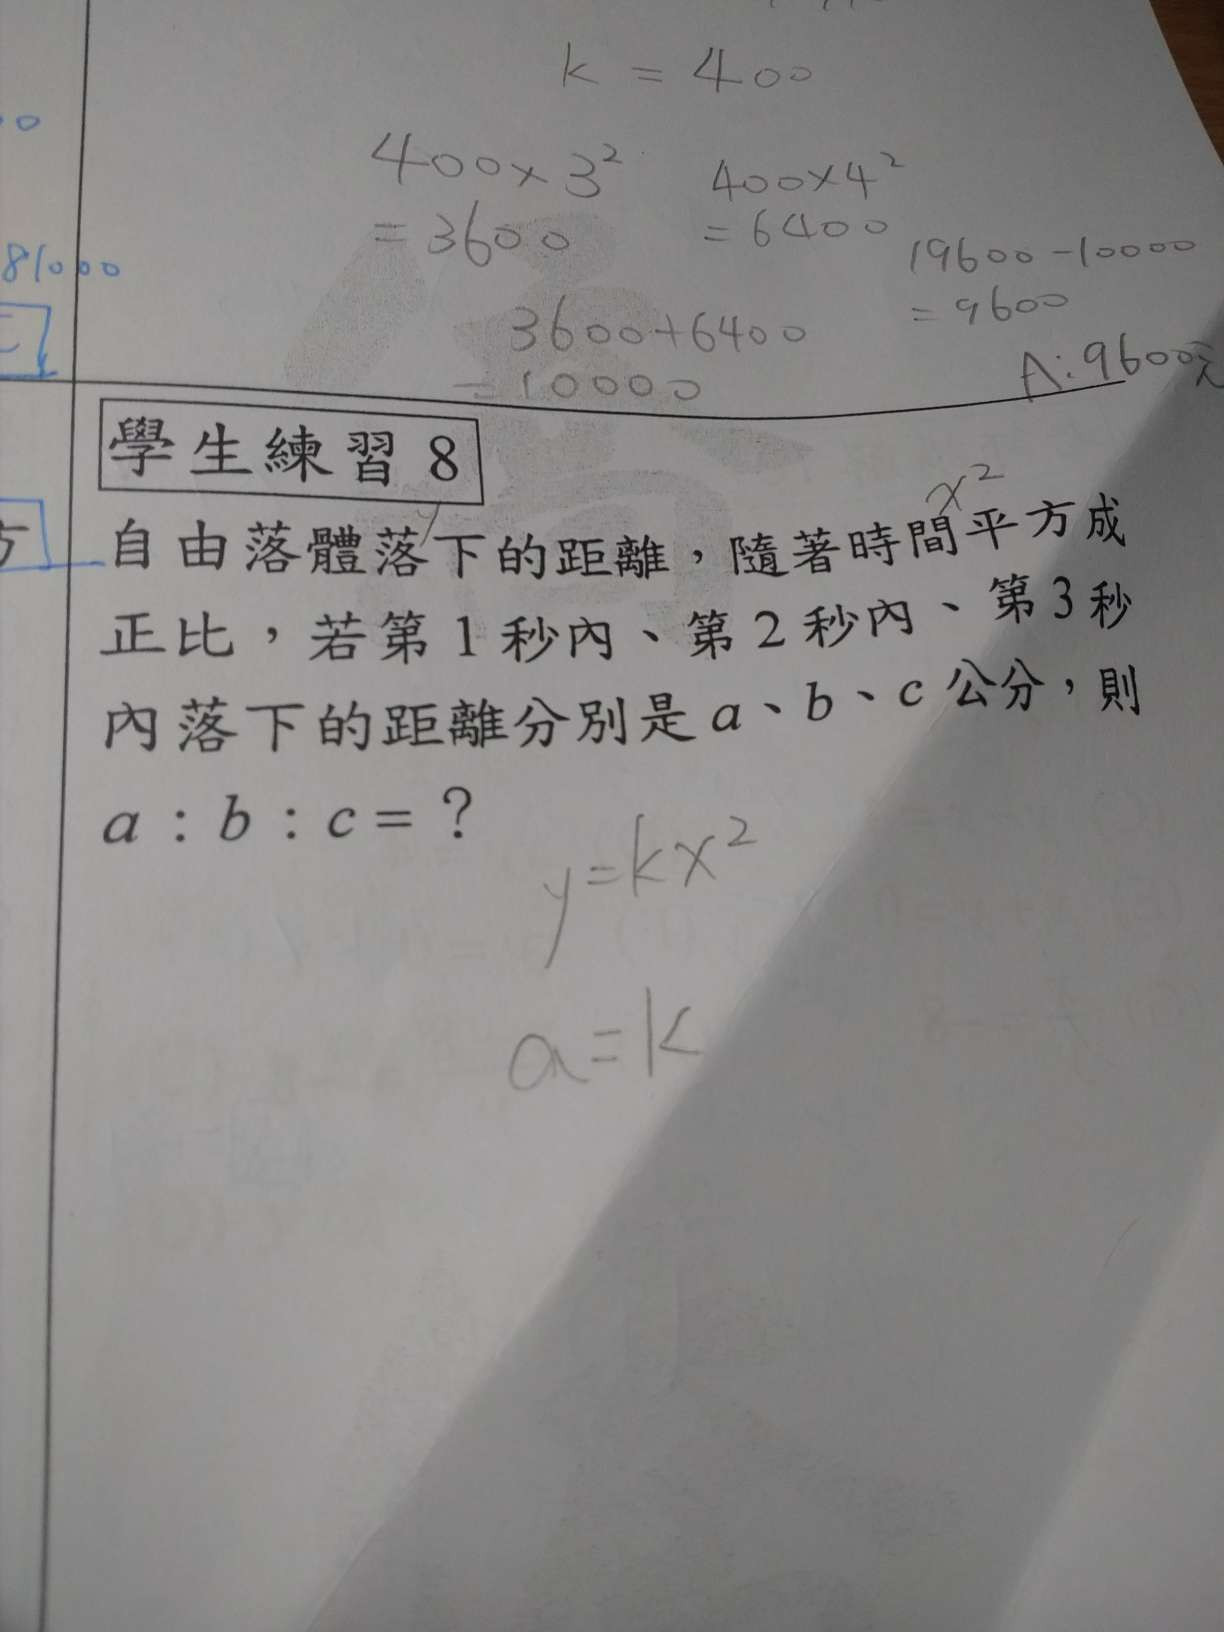 k = 400
400×3² 400×4²
= 3600 = 6400
19600-10000
= 9600
3600+6400
= 10000
A:9600元
81000
學生練習 8
y
x²
自由落體落下的距離，隨著時間平方成
正比，若第1秒內、第2秒內、第3秒
內落下的距離分別是a、b、c公分，則
a：b：c=？
y=kx²
a=k